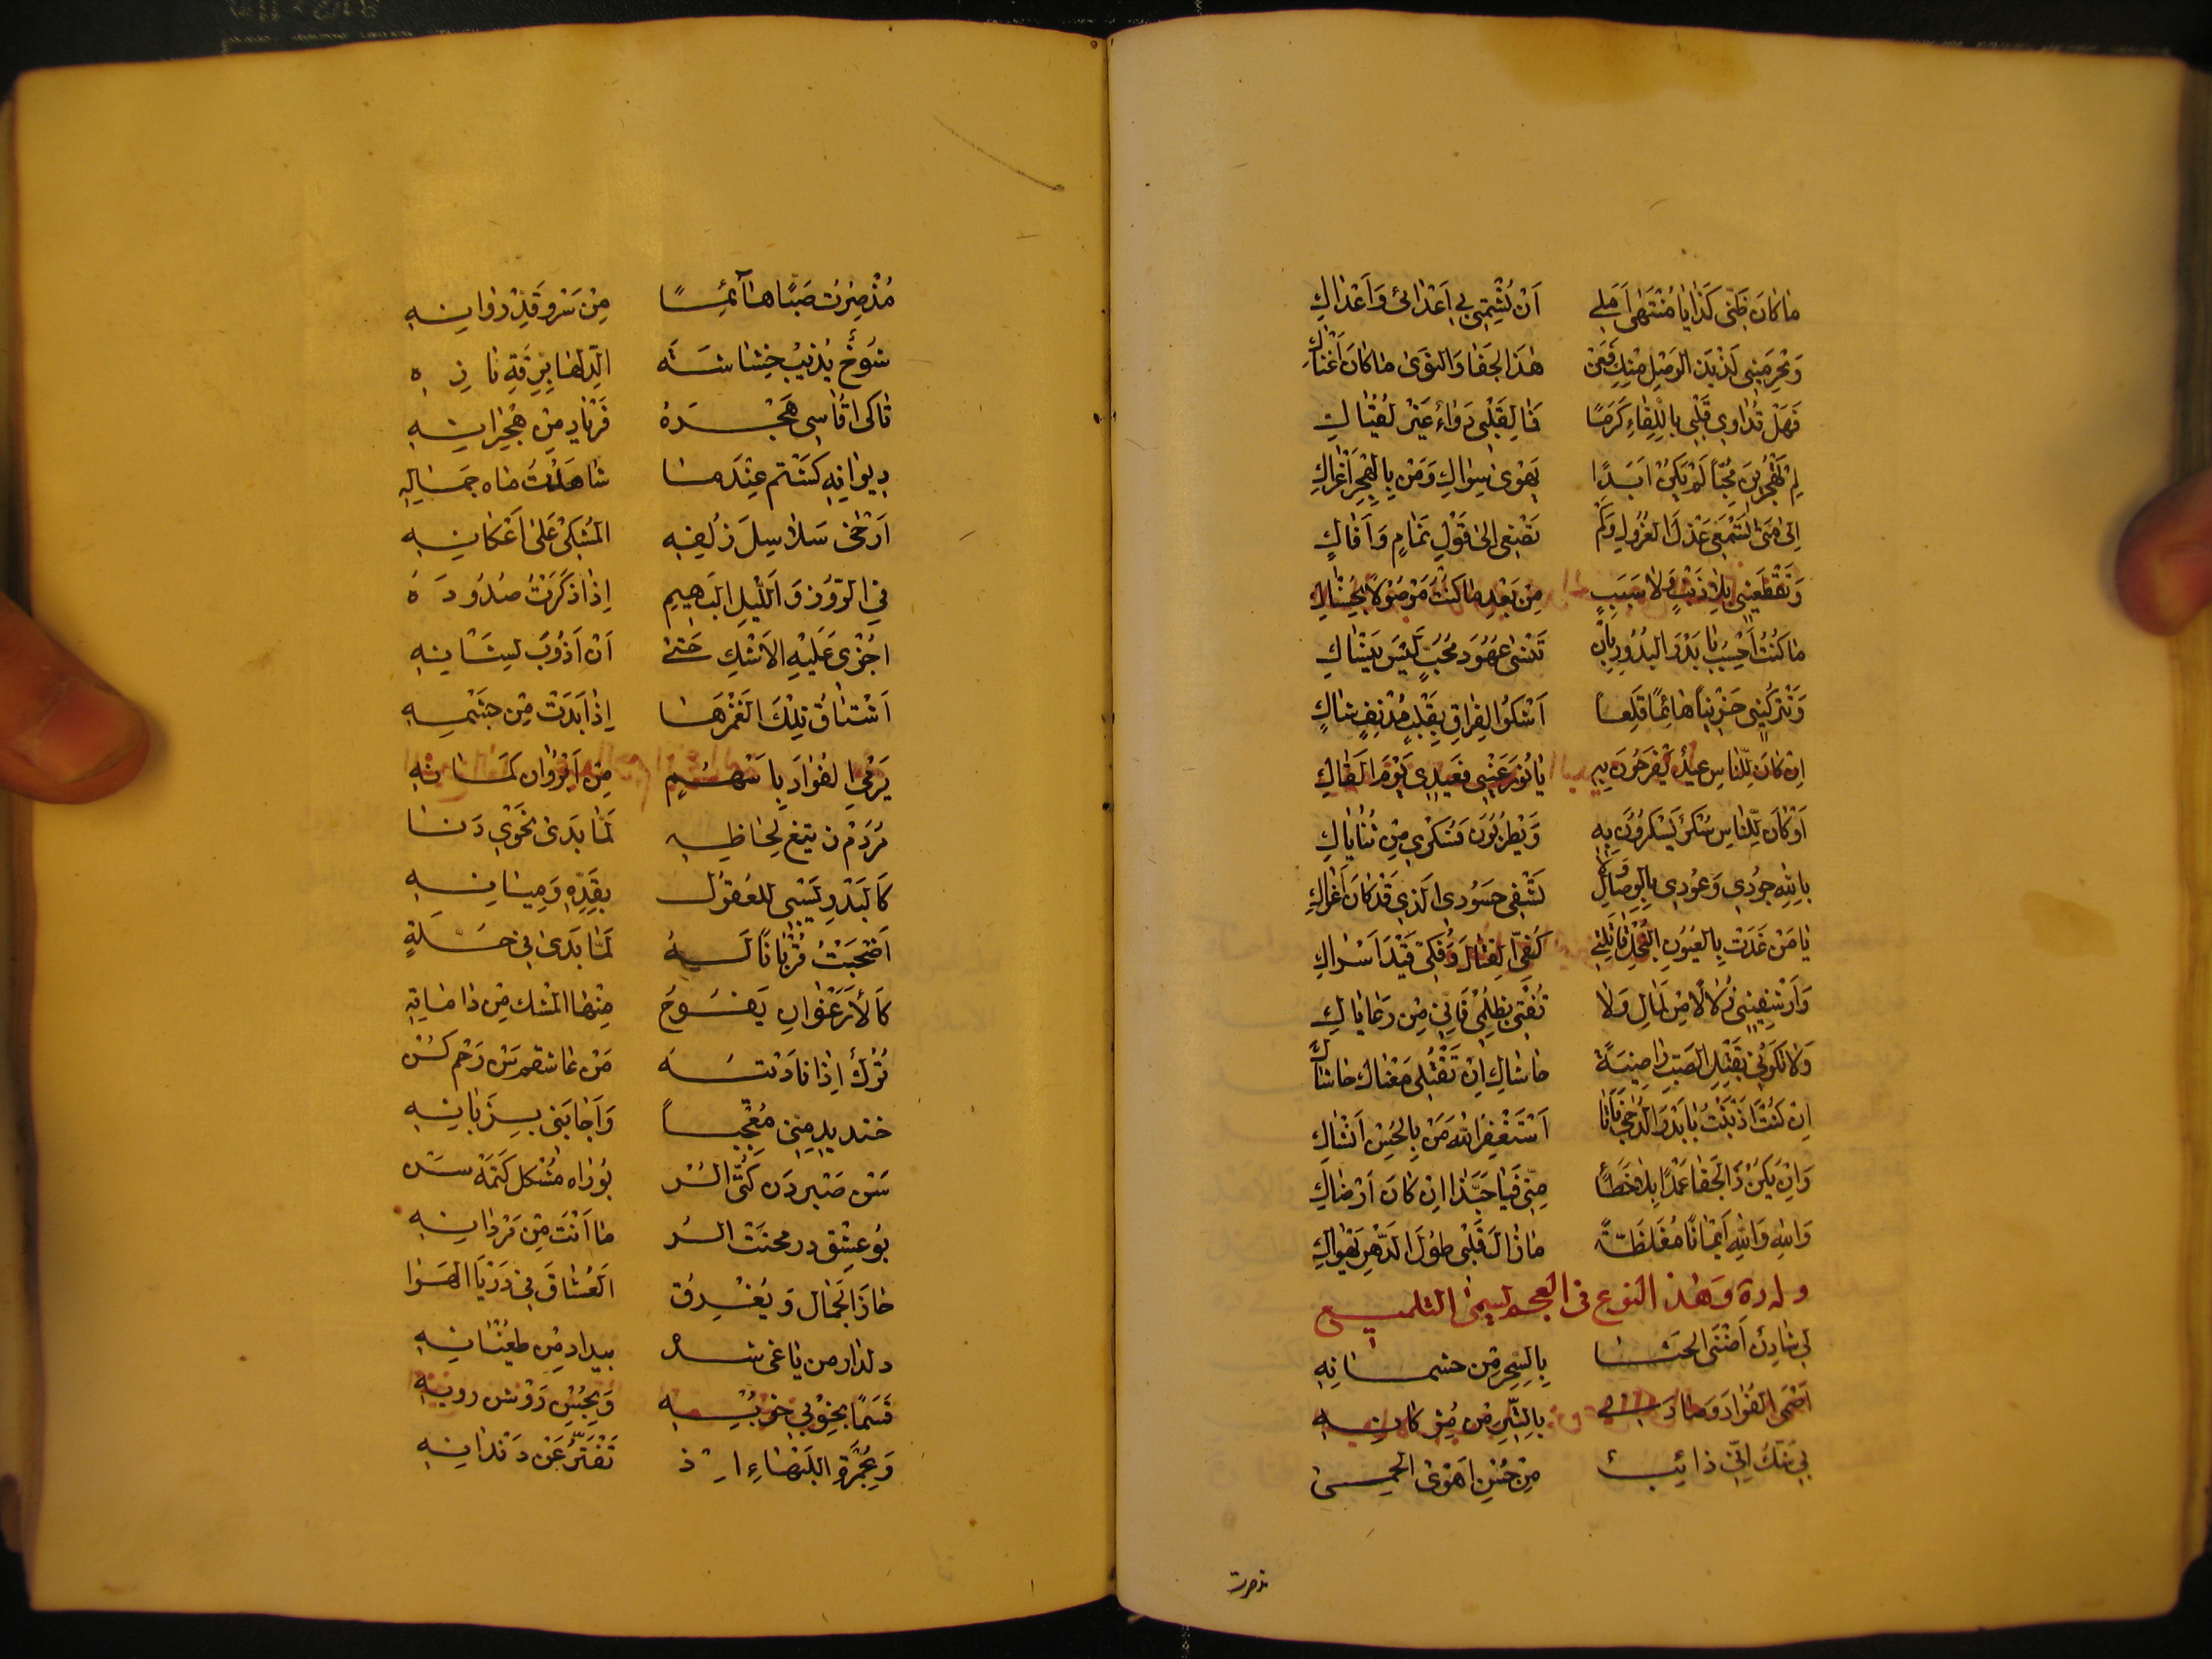 مَا كَانَ ظَنِّي كَذَا يَا مُنْتَهَى اَمَلِي اَنْ تُشْمِتِي بِي اَعْدَائِي وَاَعْدَاكِ
وَتَحْرِمِينِي لَذِيذَ الوَصْلِ مِنْكِ فَمَنْ هٰذَا الجَفَا وَالنَّوَى مَا كَانَ اَغْنَاكِ
فَهَلْ تُدَاوِي قَلْبِي بِاللِّقَاءِ كَرَمًا فَمَا لِقَلْبِي دَوَاء غَيْرَ لُقْيَاكِ
لِمْ تَهْجُرِينَ مُحِبًّا لَمْ يَكُنْ اَبَدًا يَهْوَى سِوَاكِ وَمَنْ بِالهَجْرِ اَغْرَاكِ
اِلَى مَتَى تَسْمَعِي عَذْلَ العَذُولِ وَكَمْ تَصْغِي اِلَى قَوْلِ نَمَّامٍ وَاَفَّاكِ
وَتَقْطَعِينِي بِلَا ذَنْبٍ وَلَا سَبَبٍ مِنْ بَعْدِ مَا كُنْتُ مَوْصُولًا بِحُسْنَاكِ
مَا كُنْتُ اَحْسِبُ يَا بَدْرَ البُدُورِ بِاَنْ تَنْسَى عُهُودَ مُحِبٍّ لَيْسَ يَنْسَاكِ
وَتَتْرُكِينِي حَزِينًا هَائِمًا قَلِقًا اَشْكُو الفِرَاقِ بِقَلْبٍ مُدْنِفٍ شَاكِ
اِنْ كَانَ لِلنَّاسِ عِيدٌ يَفْرَحُونَ بِهِ يَا نُورَ عَيْنِي فَعِيدِي يَوْمَ اَلْقَاكِ
اَوْ كَانَ لِلنَّاسِ سُكْرٌ يَسْكَرُونَ بِهِ وَيَطْرَبُونَ فَسُكْرِي مِنْ ثَنَايَاكِ
بِاللهِ جُودِي وَعُودِي بِالوِصَالِ وَلَا تَشْفِي حَسُودِي الَّذِي قَدْ كَانَ اَغْرَاكِ
يَا مَنْ غَدَتْ بِالعُيُونِ النُّجْلِ قَاتِلَتِي كُفِّي القِتَالَ وَفُكِّي قَيْدَ اَسْرَاكِ
وَاَرْشِفِينِي زُلَالًا مِنْ لَمَاكِ وَلَا تُفْتِي بِظُلْمِي فَاِنِّي مِنْ رَعَايَاكِ
وَلَا تَكُونِي بِقَتْلِ الصَّبِّ رَاضِيَةً حَاشَاكِ اِنْ تَقْتُلِي مَعْنَاكَ حَاشَاكِ
اِنْ كُنْتُ اَذْنَبْتُ يَا بَدْرَ الدُّجَى فَاَنَا اَسْتَغْفِرُ اللهَ مَنْ بِالحُسْنِ اَنْشَاكِ
وَاِنْ يَكُنْ ذَا الجَفَا عَمْدًا بِلَا خَطَأٍ مِنِّي فَيَا حَبَّذَا اِنْ كَانَ اَرْضَاكِ
وَاللهِ وَاللهِ اَيْمَانًا مُغَلَّظَةً مَا زَالَ قَلْبِي طُولَ الدَّهْرِ يَهْوَاكِ
وله ره وَهٰذَا النوع فِي العجم يسمى التلميع
لِي شَادِنٌ اَضْنَى الحَشَا بِالسِّحْرِ مِنْ چشمانِهِ
اَضْمَى الفُؤَادَ وَصَادَنِي بِالتِّيرِ مِنْ مُژگانِهِ
بِي نُسُكُ اِنِّي ذَائِبٌ مِنْ حُسْنِ اَهْوَى
مذصرت
مُذْ صِرْتُ صَبًّا هَائِمًا مِنْ سَرْوِ قَدِّ رَوَانِهِ
شُوخٌ يُذِيبُ خِشَاشَتَه بِرِقَّةِ نَازِهِ
تَاكَى اُقَاسِي هَجْرَهُ فَرْيَادِ مِنْ هُجْرَانِهِ
دِيوَانِهِ كَشْتَم عِنْدَمَا شَاهَدْتُ مَاه جَمَالِهِ
اَرْخَى سَلَاسِلَ زُلْفِهِ المُشْكِي عَلَى اَعْكَانِهِ
فِي الرُّوزِ وَاللَّيْلِ البَهِيمِ اِذَا ذَكَرْتُ صُدُودَهُ
اُجْرِي عَلَيْهِ الاَشْكِ حَتَّى اَنْ اَذُوبَ لِسَانِهِ
اَشْتَاقُ تِلْكَ الغَمْزَهَا اِذَا بَدَتْ مِنْ چَشْمِهِ
يَرْمِي الفُؤَادَ بِاَسْهُمٍ مِنْ اَبْرُوَان كَمَانِهِ
مُرْدَم زِ تِيغِ لِحَاظِهِ لَمَّا بَدَى نَحْوِي دَنَا
كَالبَدْرِ يَسْبِي لِلْعُقُولِ بِقَدِّهِ وَمِيَانِهِ
اَضْحَيْتُ قُرْبَانًا لَهُ لَمَّا بَدَى فِي حُلَّةٍ
كَالاَرْغَوَانِ يَفُوحُ مِنْهَا المُشْك مِنْ دَامَانِهِ
تُرْكٌ اِذَا نَادَيْتُهُ مَنْ عَاشقم بَس رَحْم كُنْ
خنديد مِنِّي مُعْجِبًا وَاَجَابَنِي بِزَبَانِهِ
بُو رَاه مُشْكِل
بُو عِشْق در محنت السر مَا اَنْتَ مِنْ مَرْدَانِهِ
حَازَ الجَمَال وَيُغْرِقُ العُشَّاقَ فِي دَرْيَا الهَوَا
دلدار من ياغى شد بيداد مِنْ طُغْيَانِهِ
قَسَمًا بِخُوبِي خُوبِهِ وَبِحُسْنِ رَوْنَق رويه